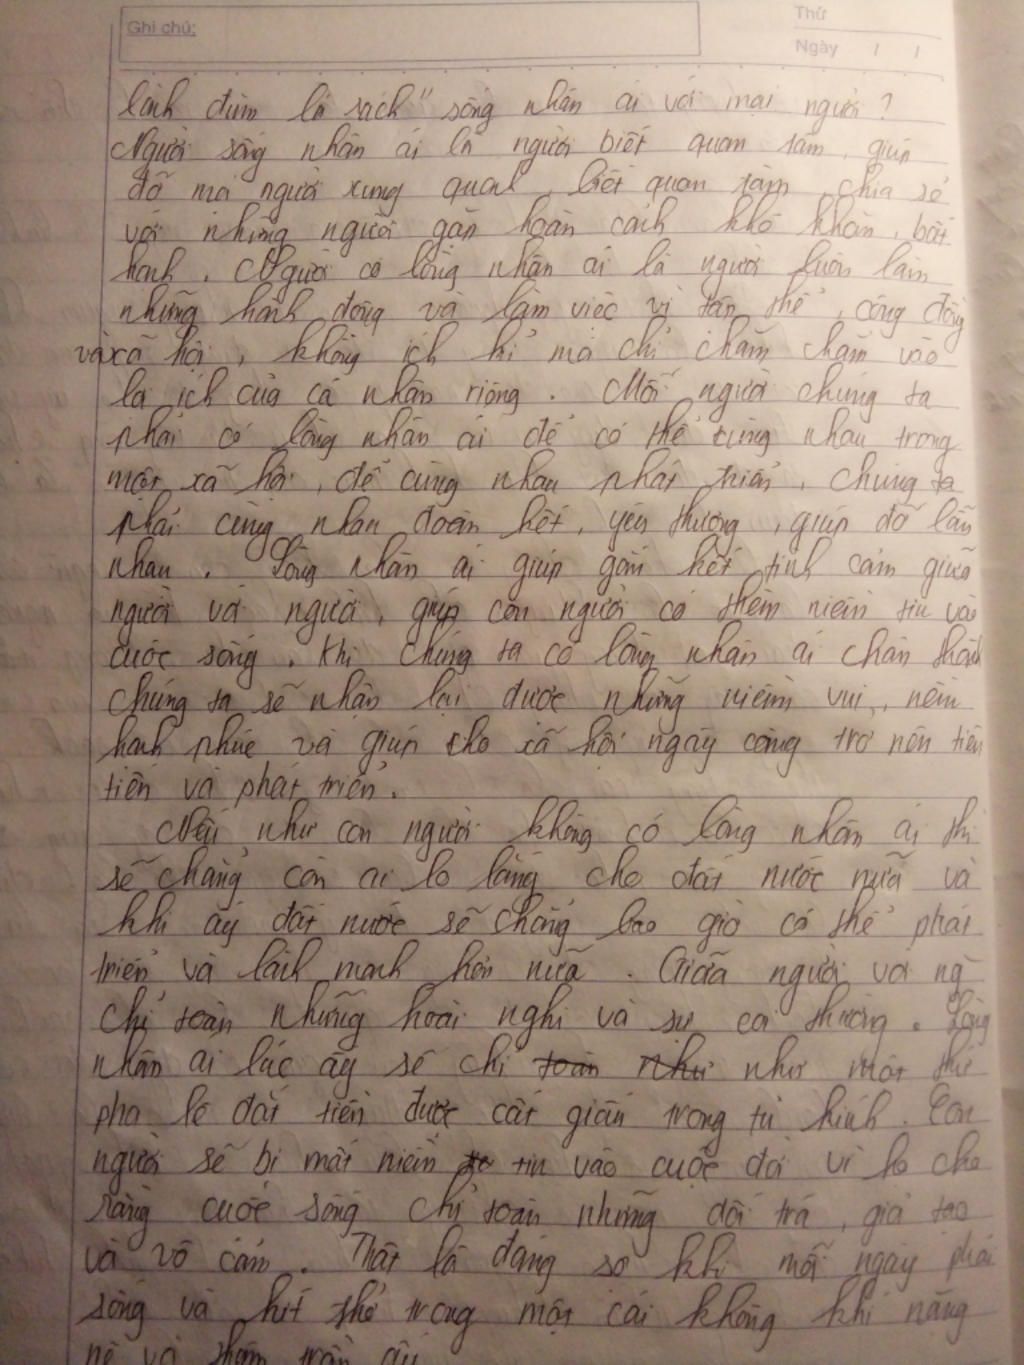 Ghi chú:
Thứ
Ngày / /
lành đùm lá rách" sống nhân ái với mọi người ?
Người sống nhân ái là người biết quan tâm, giúp
đỡ mọi người xung quah, biết quan tâm, chia sẻ
với những người gặp hoàn cảnh khó khăn, bất
hạnh. Người có lòng nhân ái là người luôn làm
những hành động và làm việc vì tập thể, cộng đồng
và xã hội, không ích kỉ mà chỉ chăm chăm vào
lợi ích của cá nhân riêng. Mỗi người chúng ta
phải có lòng nhân ái để có thể cùng nhau trong
một xã hội, để cùng nhau phát triển, chúng ta
phải cùng nhau đoàn kết, yêu thương, giúp đỡ lẫn
nhau. Lòng nhân ái giúp gắn kết tình cảm giữa
người với người, giúp con người có thêm niềm tin vào
cuộc sống. Khi chúng ta có lòng nhân ái chân thành
chúng ta sẽ nhận lại được những niềm vui, niềm
hạnh phúc và giúp cho xã hội ngày càng trở nên tiên
tiến và phát triển.
Nếu như con người không có lòng nhân ái thì
sẽ chẳng còn ai lo lắng cho đất nước nữa và
khi ấy đất nước sẽ chẳng bao giờ có thể phát
triển và lành mạnh hơn nữa. Giữa người với ng
chỉ toàn những hoài nghi và sự coi thường. Lòng
nhân ái lúc ấy sẽ chỉ toàn như như một thứ
pha lê đắt tiền được cất giấu trong tủ kính. Con
người sẽ bị mất niềm tin vào cuộc đời vì họ cho
rằng cuộc sống chỉ toàn những dối trá, giả tạo
và vô cảm. Thật là đáng sợ khi mỗi ngày phải
sống và hít thở trong một cái không khí nặng
nề và